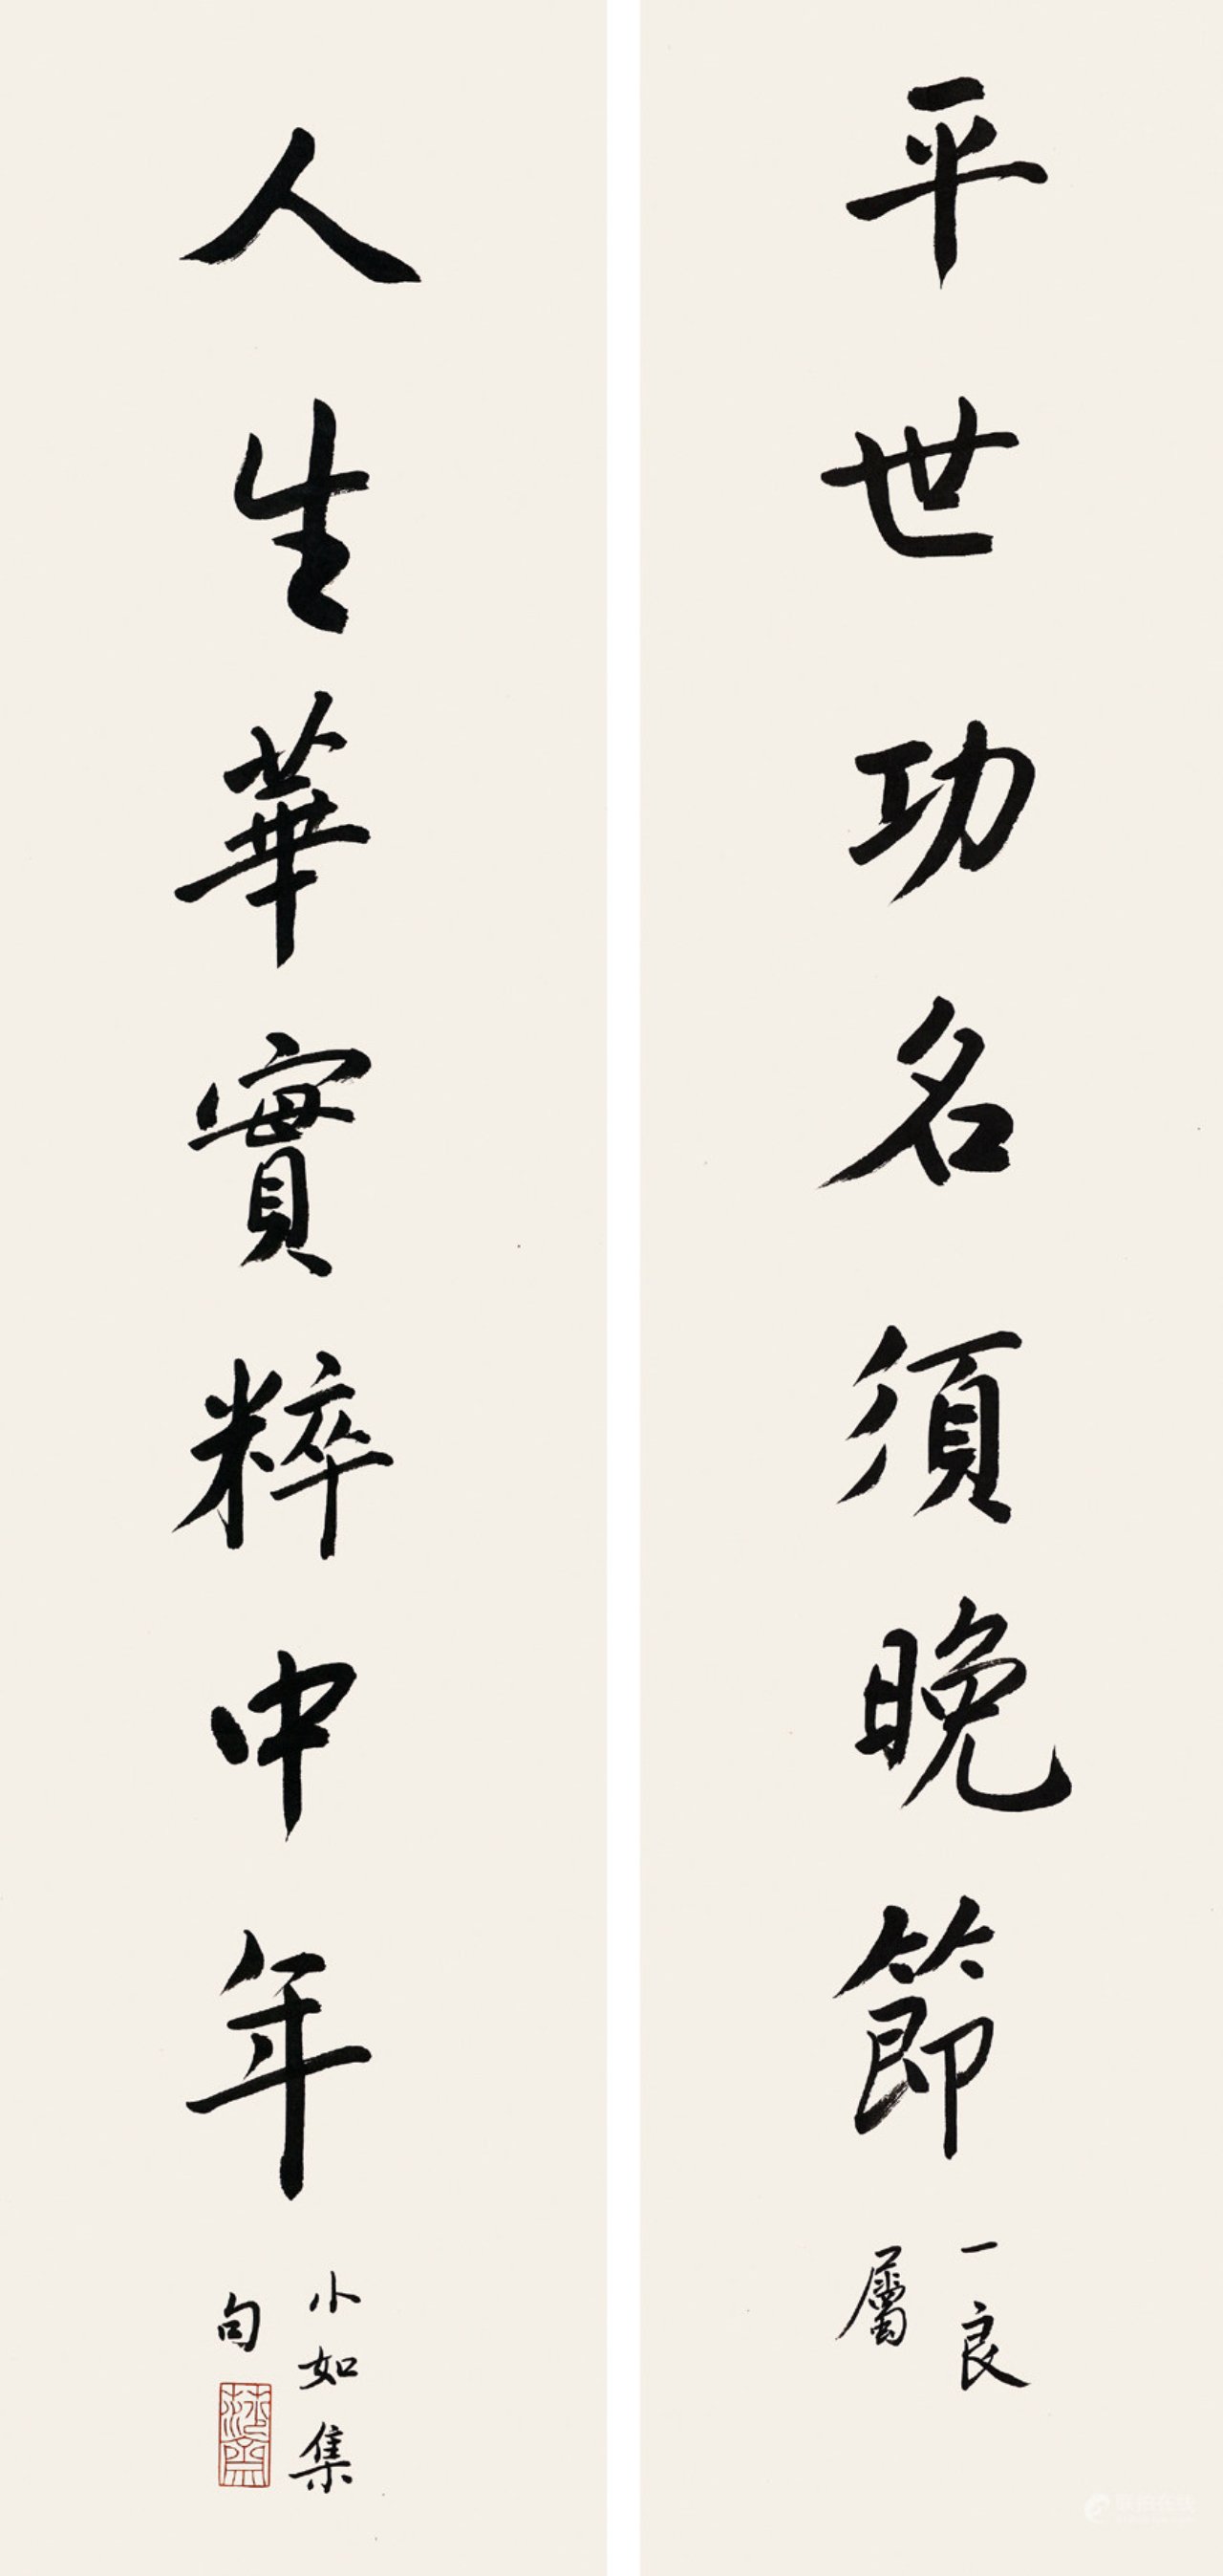 平世功名須晚節
一良
屬
人生華實粹中年
小如集
句